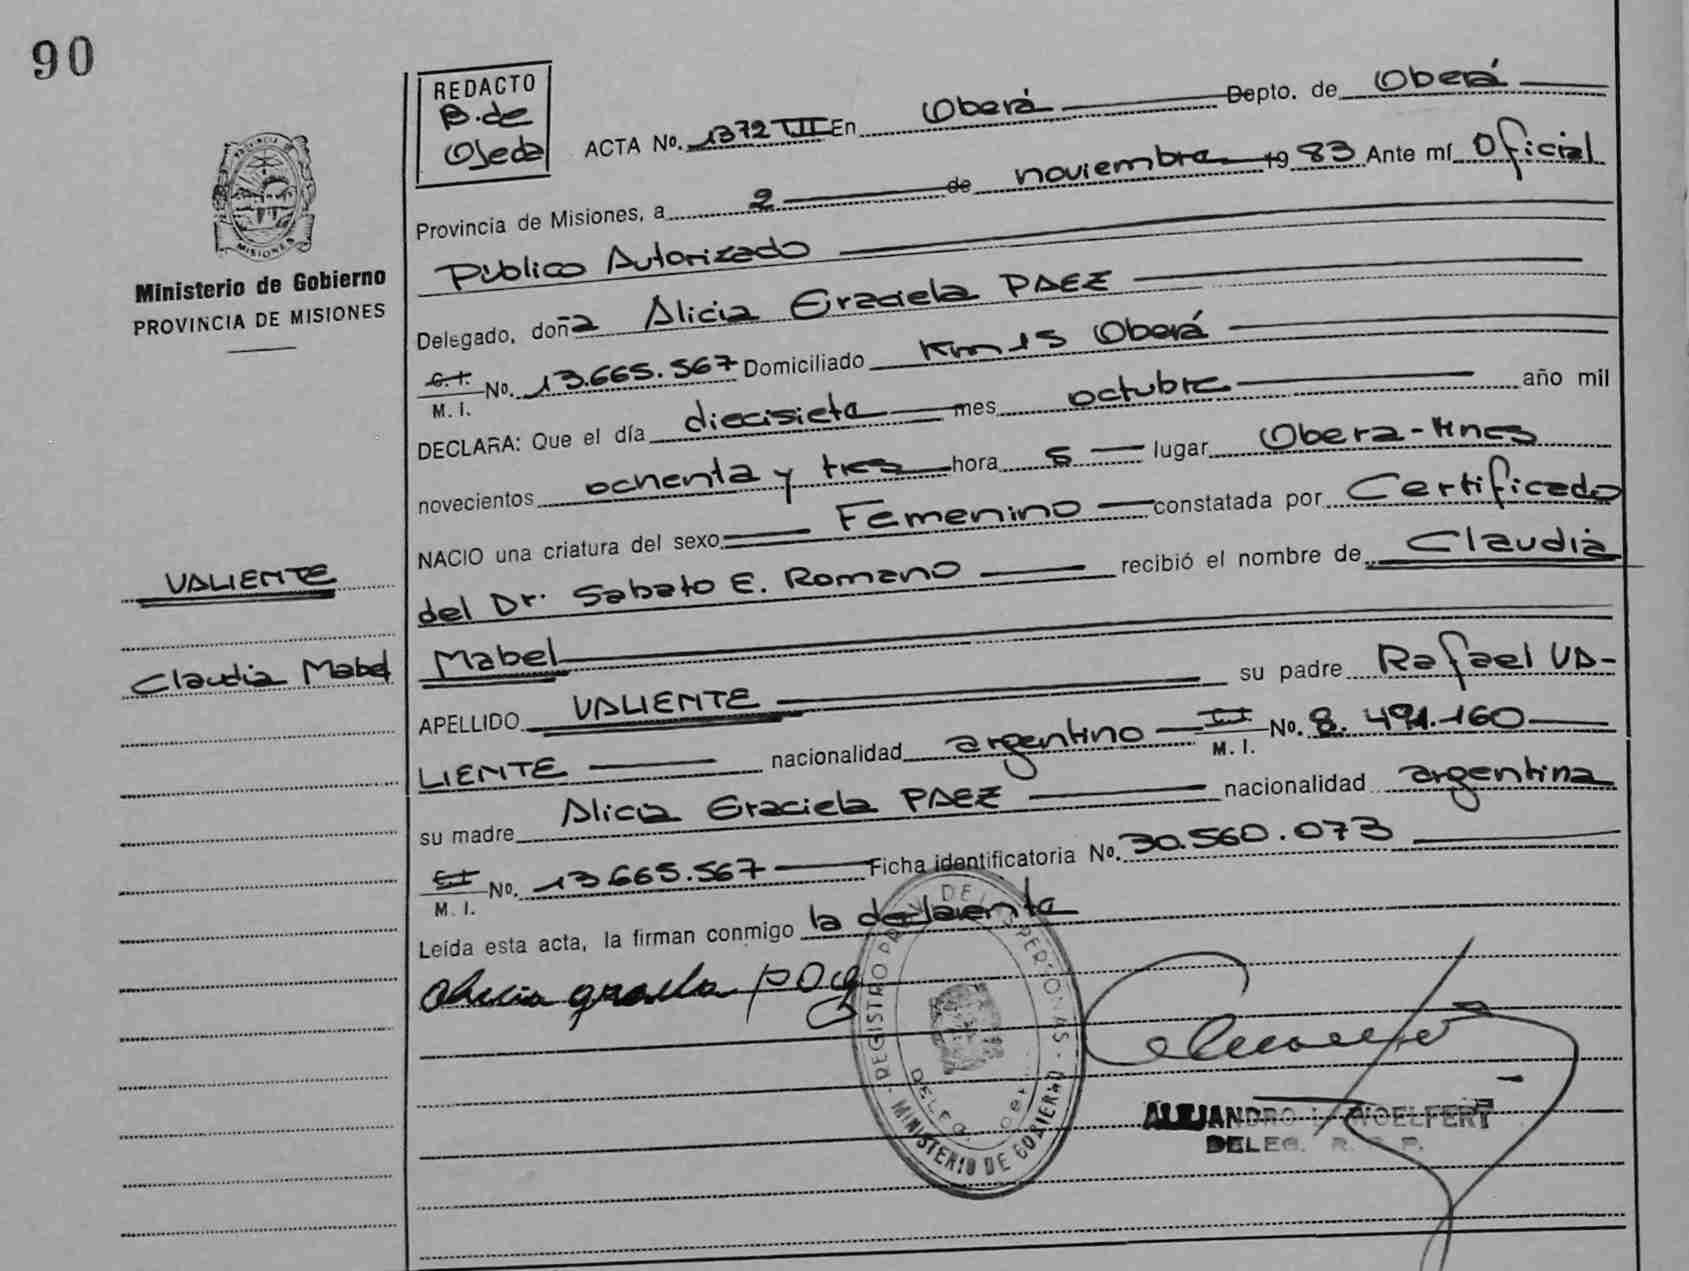 90
REDACTO
B. de
Ojeda
ACTA No. 1372 TIII En Oberá Depto. de Oberá
Provincia de Misiones, a 2 de noviembre 1983 Ante mí Oficial
Público Autorizado
Delegado, doña Alicia Graciela PAEZ
C.I. M. I. No. 13.665.567 Domiciliado Km 15 Oberá
DECLARA: Que el día diecisiete mes octubre año mil
novecientos ochenta y tres hora 5 lugar Obera-Mnes
NACIO una criatura del sexo Femenino constatada por Certificado
del Dr. Sabato E. Romano recibió el nombre de Claudia
Mabel
APELLIDO VALIENTE su padre Rafael VA-
LIENTE nacionalidad argentino M. I. No. 8.491.160
su madre Alicia Graciela PAEZ nacionalidad argentina
M. I. No. 13.665.567 Ficha identificatoria No. 30.560.073
Leída esta acta, la firman conmigo la declarente
PROVINCIA DE
MISIONES
Ministerio de Gobierno
PROVINCIA DE MISIONES
VALIENTE
Claudia Mabel
REGISTRO DE PERSONAS
MINISTERIO DE GOBIERNO
DELEG.
ALEJANDRO
DELEG. R. P.